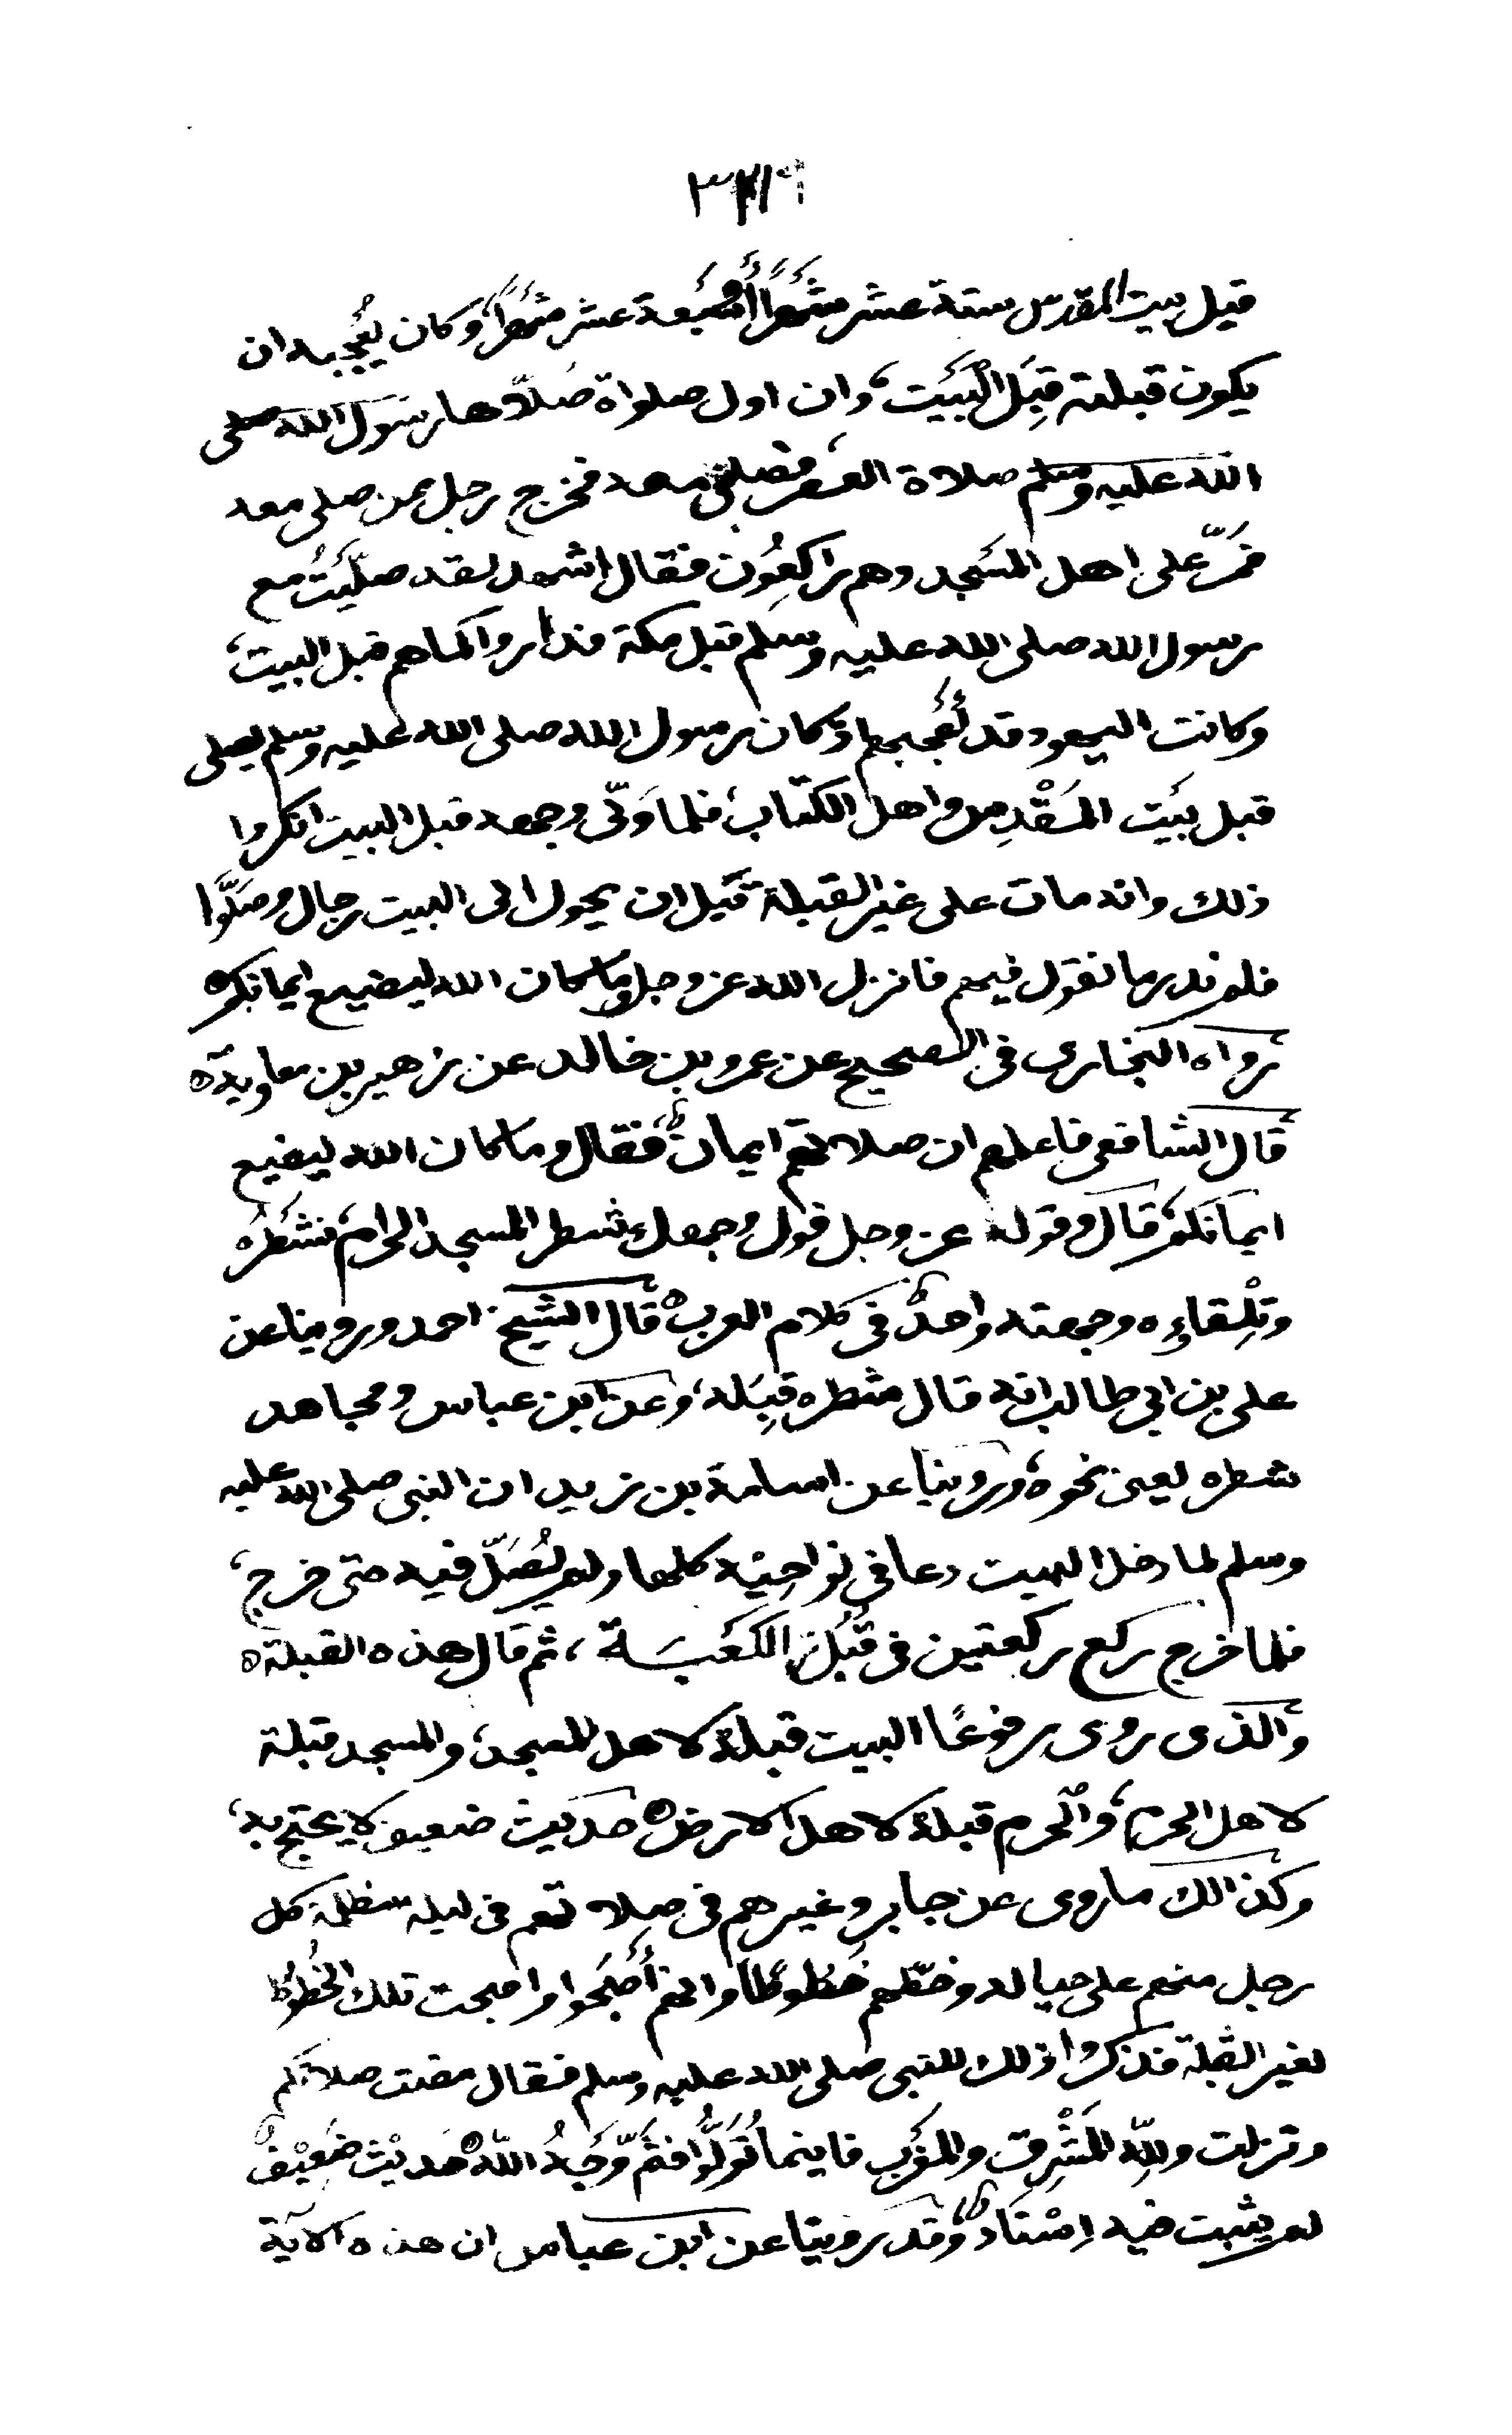 قبل بيت المقدس ستة عشر شَهْرًا أو سَبْعة عشر شهرًا، وكان يُعْجِبه ان
يكون قبلته قِبَل الْبَيْت، وان اول صلواة صَلّاها رسَوُل الله صلى
الله عليه وسلم صلاة العصر فصلى معه فخرج رجل ممن صلى معه
فمَرّ على اهل المسَجد وهم راكعُون فقال اشهد لقد صلّيَتُ مع
رسول الله صلى الله عليه وسلم قبل مكة فداروا كما هم قبل البيت،
وكانت اليهود قد أَعْجبهم اذ كان رسول الله صلى الله عليه وسلم يصلى
قبل بيَت المَقْدِس واهل الكتاب، فلما وَلّى وجهه قبل البيت انكروا
ذلك وانه مات على غير القبلة قَبل ان يحول الى البيت رجال وصَلَّوا
فلم ندر ما نقول فيهم فانزل الله عز وجل وما كان الله ليضيع ايمانكم ه
رواه البخارى فى الصحيح عن عمرو بن خالد عن زهير بن معاوية ه
قال الشافعى فاعلم ان صلاتهم ايمانٌ، فقال وما كان الله ليضيع
ايمانكم، قال وقوله عز وجل فول وجهك شطر المسجد الحرام، فشَطْرُه
وتِلْقاؤه وجهته واحدٌ فى كلام العرب ه قال الشيخ احمد وروينا عن
على بن ابي طالب انه قال شطره قِبَله، وعن ابن عباس ومجاهد
شطره يعنى نحوه، وروينا عن اسامة بن زيد ان النبى صلى الله عليه
وسلم لما دخل البيت دعا في نواحِيْه كلها ولم يُصَلّ فيه حتى خرج،
فلما خرج ركع ركعتين فى قُبُل الكَعْبَة، ثم قال هذه القبلة ه
والذى روى مرفوعًا البيت قبلة لاهل المسجد، والمسجد قبلة
لاهل الحرم، والْحرم قبلة لاهل الارض ه حديث ضعيف لا يحتج به،
وكذالك ما روى عن جابر وغيرهم فى صلاتهم فى ليلة مظلمة كل
رجل منهم على حياله وخطهم خُطوطًا وانهم أَصْبَحُوا واصبحت تلك الخُطُوط
لغير القبلة فذكروا ذلك للنبى صلى الله عليه وسلم فقال مضت صلاتكم
ونزلت وللهِ المَشْرِق والمغَرب فاينما تُوَلُّوا فثَمَّ وَجْهُ الله ه حَديْث ضَعِيْفٌ
لم يثبت فيه اِسْنَادٌ، وقد روينا عن ابن عباس ان هذه الآية